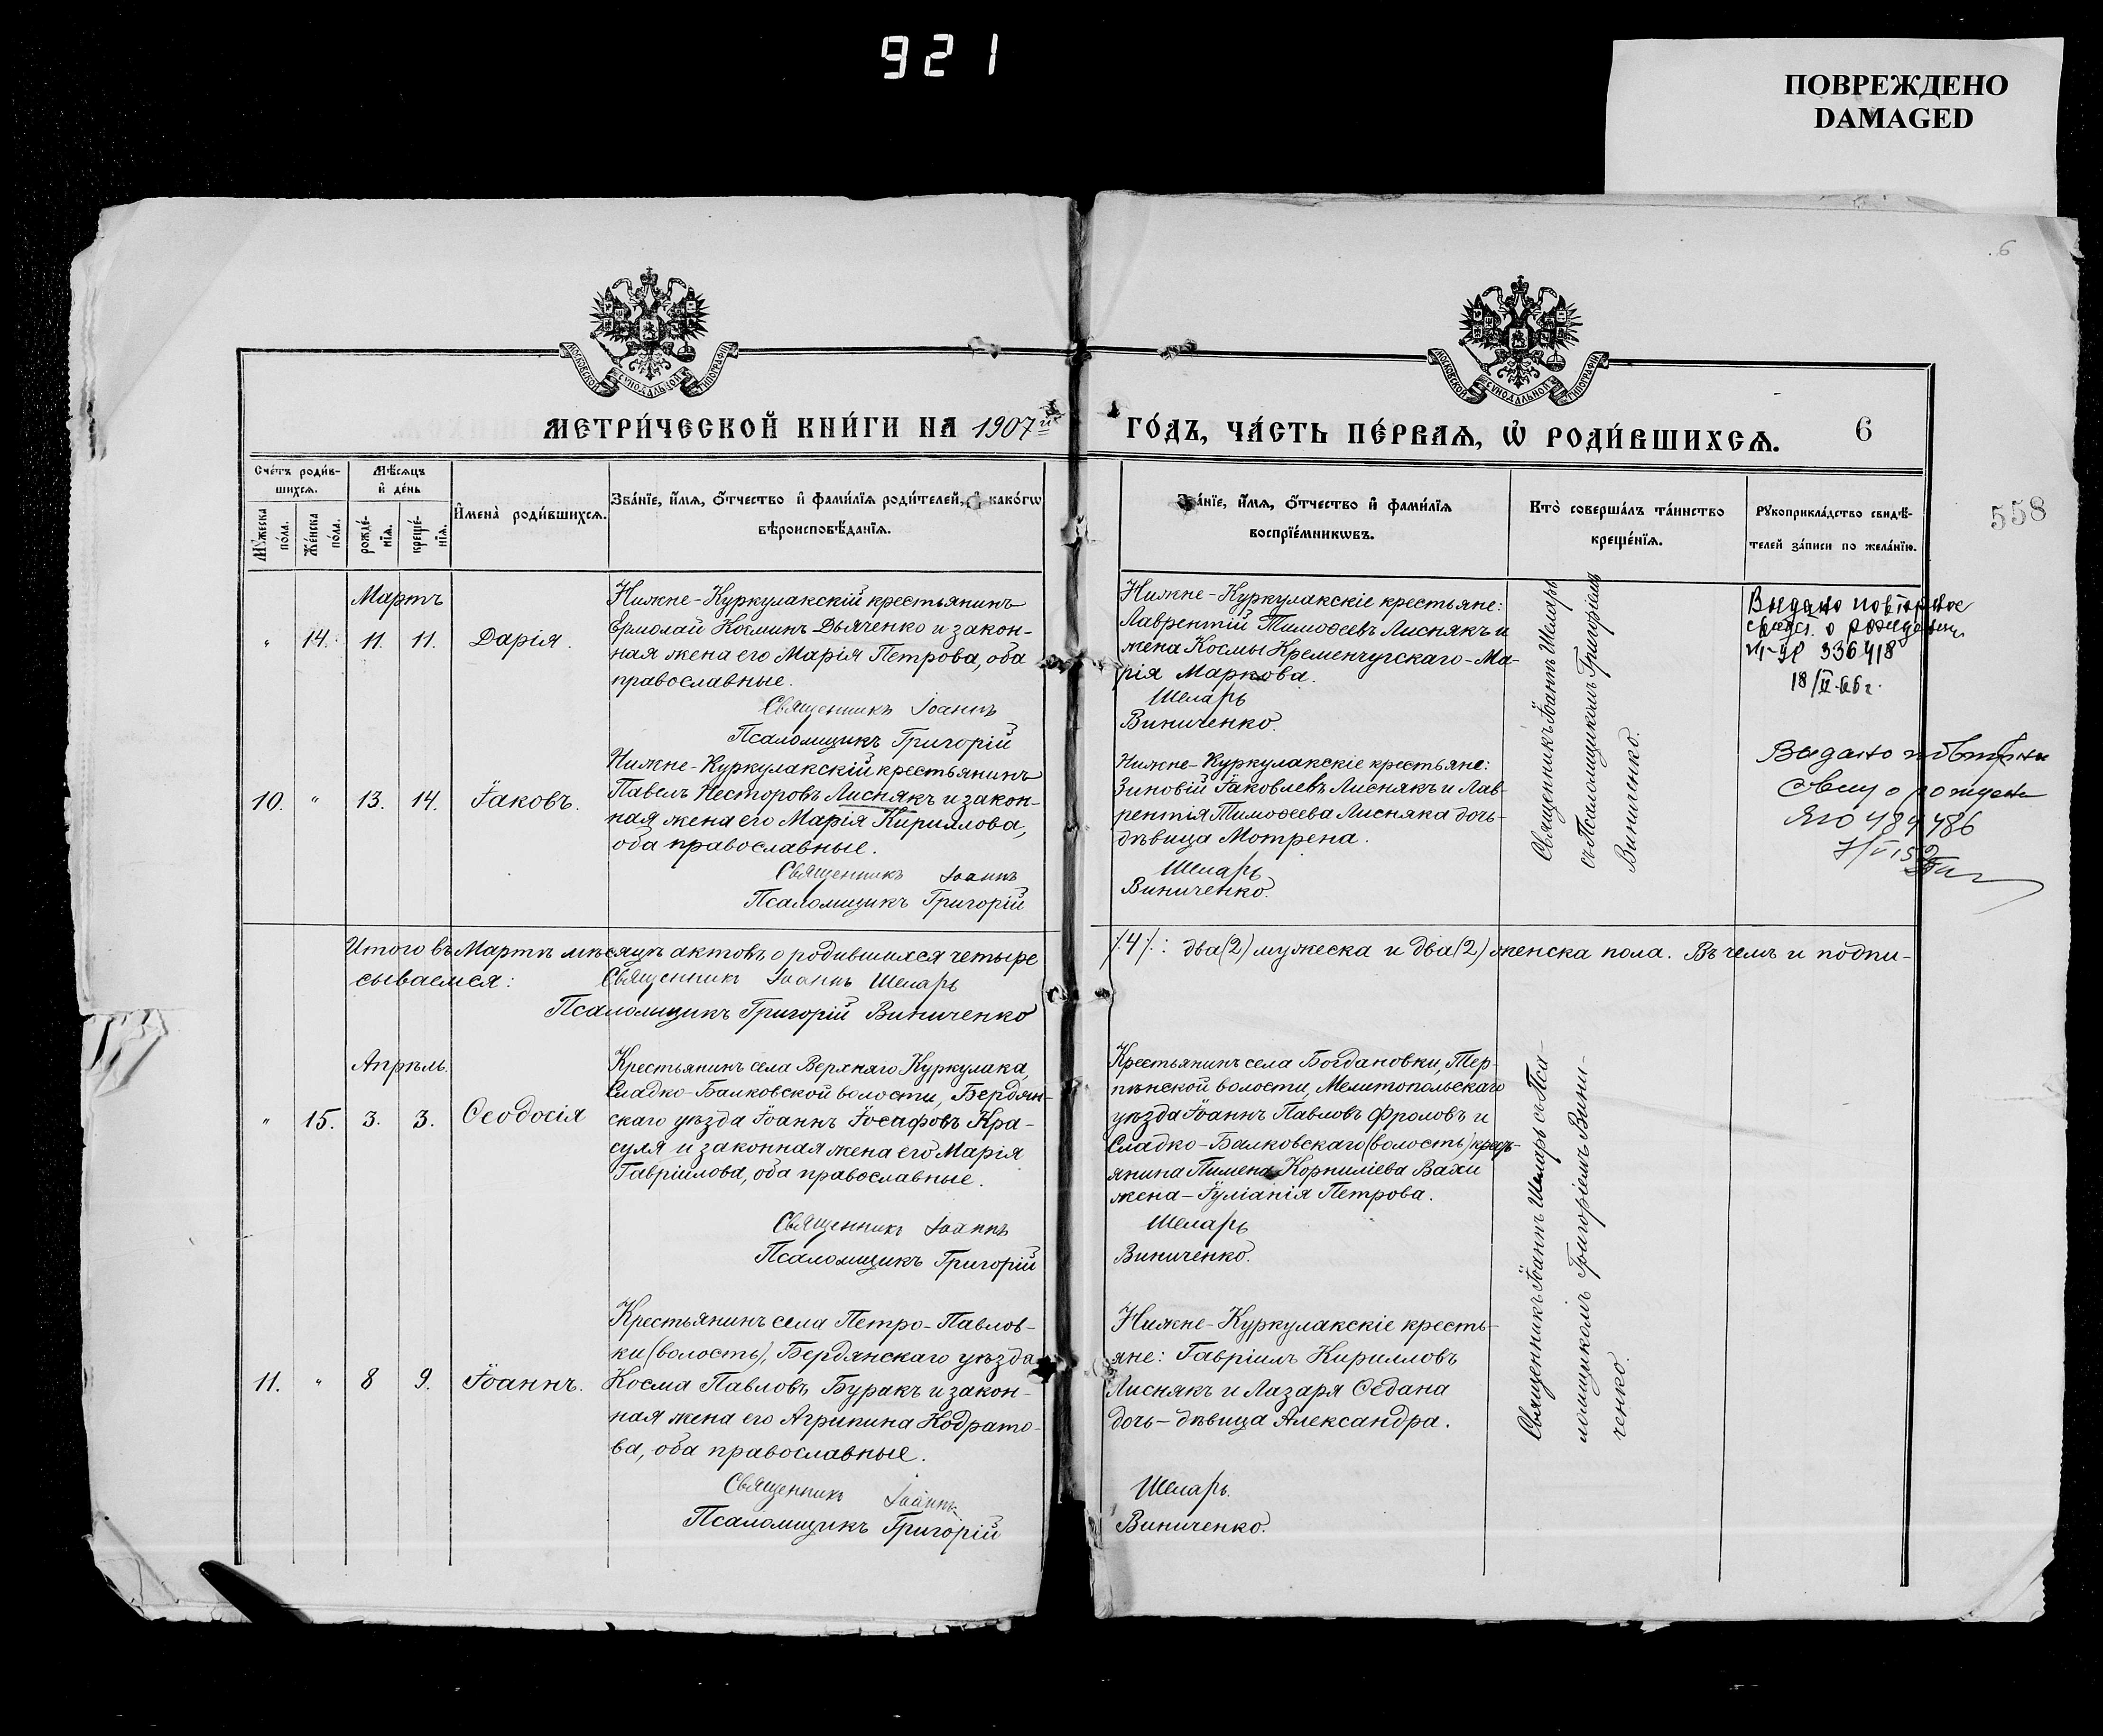 921
ПОВРЕЖДЕНО
DAMAGED
6
МОСКОВСКОЙ СУНОДАЛЬНОЙ ТИПОГРАФІИ
МОСКОВСКОЙ СУНОДАЛЬНОЙ ТИПОГРАФІИ
МЕТРИ́ЧЕСКОЙ КНИ́ГИ НА 1907й
ГО́ДЪ, ЧА́СТЬ ПЕ́РВАѦ, Ѡ РОДИ́ВШИХСѦ.
6
558
Сче́тъ роди́в-
шихсѧ.
Мѣ́сѧцъ
и҆ де́нь
Мꙋ́жеска
по́ла.
Же́нска
пола.
рожде́-
нїѧ.
креще́-
нїѧ.
И҆мена̀ роди́вшихсѧ.
Зва́нїе, и҆́мѧ, ѻ҆́тчество и҆ фами́лїѧ роди́телей, и҆ како́гѡ
вѣроисповѣ́данїѧ.
Зва́нїе, и҆́мѧ, ѻ҆́тчество и҆ фами́лїѧ
воспрїе́мникѡвъ.
Кто̀ соверша́лъ та́инство
креще́нїѧ.
Рꙋкоприкла́дство свидѣ́-
телей за́писи по жела́нїю.
Мартъ
" 14. 11. 11. Дарія.
Нижне-Куркулакскій крестьянинъ
Ермолай Косминъ Дьяченко и закон-
ная жена его Марія Петрова, оба
православные.
Священникъ Іоаннъ
Псаломщикъ Григорій
Нижне-Куркулакскіе крестьяне:
Лаврентій Тимоѳеевъ Лиснякъ и
жена Космы Кременчугскаго-Ма-
рія Маркова.
Шеларь
Виниченко.
Священникъ Іоаннъ Шеларь
съ Псаломщикомъ Григоріемъ
Виниченко.
Выдано повторное
свидет. о рождении
336418
18/II-66г.
10. " 13. 14. Іаковъ.
Нижне-Куркулакскій крестьянинъ
Павелъ Несторовъ Лиснякъ и закон-
ная жена его Марія Кириллова,
оба православные.
Священникъ Іоаннъ
Псаломщикъ Григорій
Нижне-Куркулакскіе крестьяне:
Зиновій Іаковлевъ Лиснякъ и Лав-
рентія Тимоѳеева Лисняка дочь-
дѣвица Мотрена.
Шеларь
Виниченко.
Выдано повторн
свид о рожден
ЯЮ 484486
Итого въ Мартѣ мѣсяцѣ актовъ о родившихся четыре
/4/: два (2) мужеска и два (2) женска пола. Въ чемъ и подпи-
сываемся: Священникъ Іоаннъ Шеларь
Псаломщикъ Григорій Виниченко
Апрѣль.
" 15. 3. 3. Ѳеодосія
Крестьянинъ села Верхняго Куркулака,
Сладко-Балковской волости, Бердян-
скаго уѣзда Іоаннъ Іосифовъ Кра-
суля и законная жена его Марія
Гавріилова, оба православные.
Священникъ Іоаннъ
Псаломщикъ Григорій
Крестьянинъ села Богдановки, Тер-
пѣнской волости, Мелитопольскаго
уѣзда Іоаннъ Павловъ Фроловъ и
Сладко-Балковскаго (волость) крест-
янина Пимена Корниліева Вахи
жена-Іуліанія Петрова.
Шеларь
Виниченко.
Священникъ Іоаннъ Шеларь съ Пса-
ломщикомъ Григоріемъ Вини-
ченко.
11. " 8 9. Іоаннъ.
Крестьянинъ села Петро-Павлов-
ки (волость), Бердянскаго уѣзда
Косма Павловъ Буракъ и закон-
ная жена его Агрипина Кодрато-
ва, оба православные.
Священникъ Іоаннъ
Псаломщикъ Григорій
Нижне-Куркулакскіе кресть-
яне: Гавріилъ Кирилловъ
Лиснякъ и Лазаря Седана
дочь-дѣвица Александра.
Шеларь.
Виниченко.